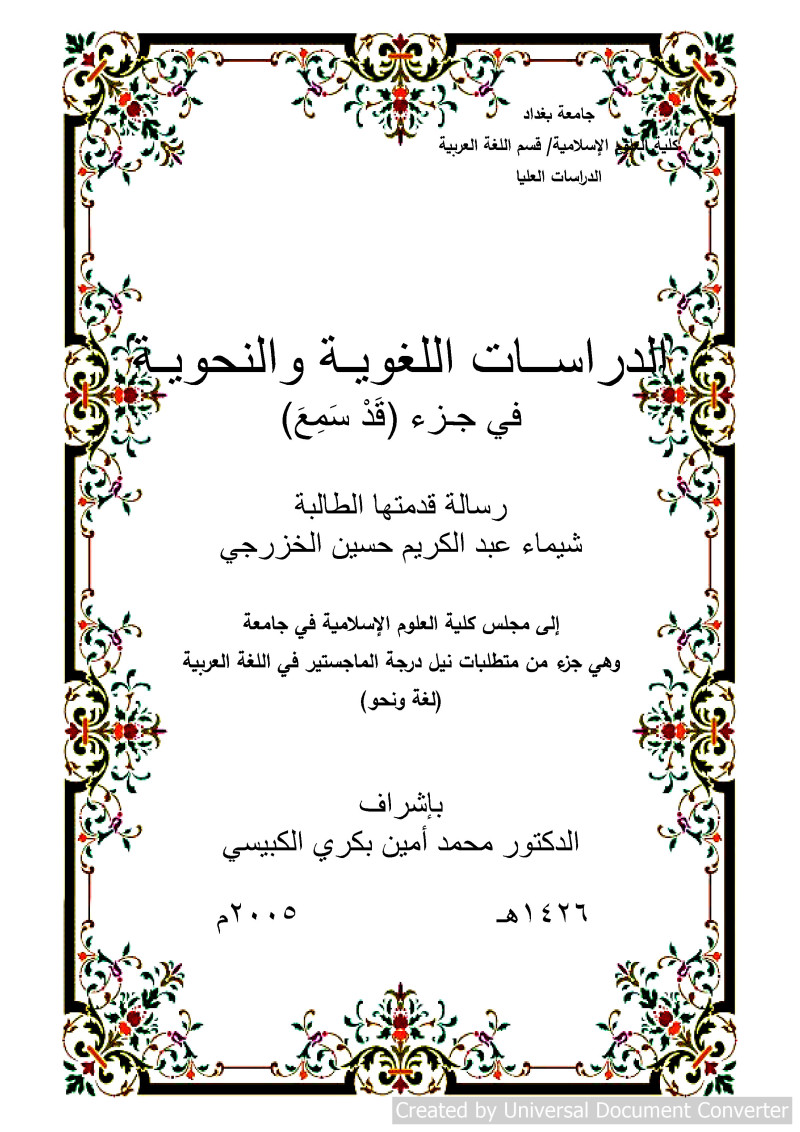 جامعة بغداد
كلية العلوم الإسلامية/ قسم اللغة العربية
الدراسات العليا
الدراســات اللغويـة والنحويـة
في جـزء (قَدْ سَمِعَ)
رسالة قدمتها الطالبة
شيماء عبد الكريم حسين الخزرجي
إلى مجلس كلية العلوم الإسلامية في جامعة
وهي جزء من متطلبات نيل درجة الماجستير في اللغة العربية
(لغة ونحو)
بإشراف
الدكتور محمد أمين بكري الكبيسي
١٤٢٦هـ ٢٠٠٥م
Created by Universal Document Converter